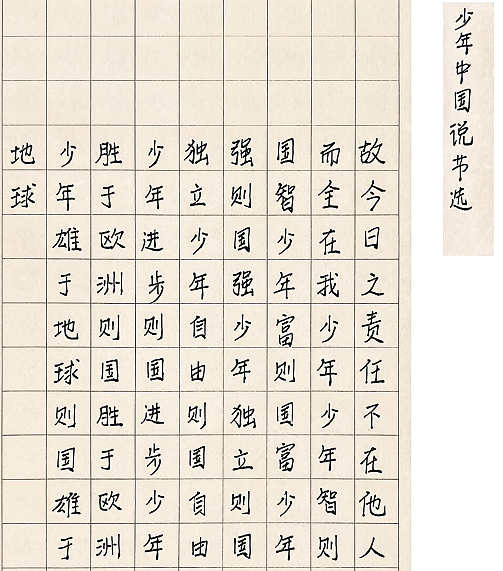 少年中国说节选
故今日之责任不在他人
而全在我少年少年智则
国智少年富则国富少年
强则国强少年独立则国
独立少年自由则国自由
少年进步则国进步少年
胜于欧洲则国胜于欧洲
少年雄于地球则国雄于
地球